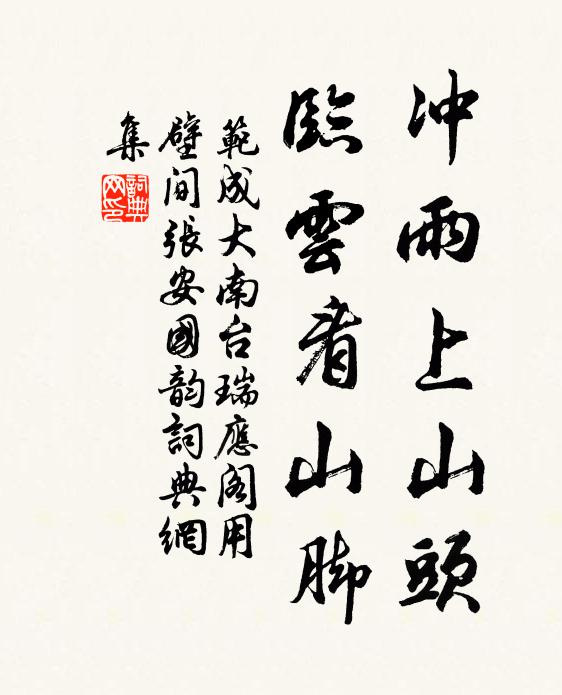 冲雨上山頭
臨雲看山脚
範成大南台瑞應阁用
壁间張安國韵詞典網
集
詞典
网印